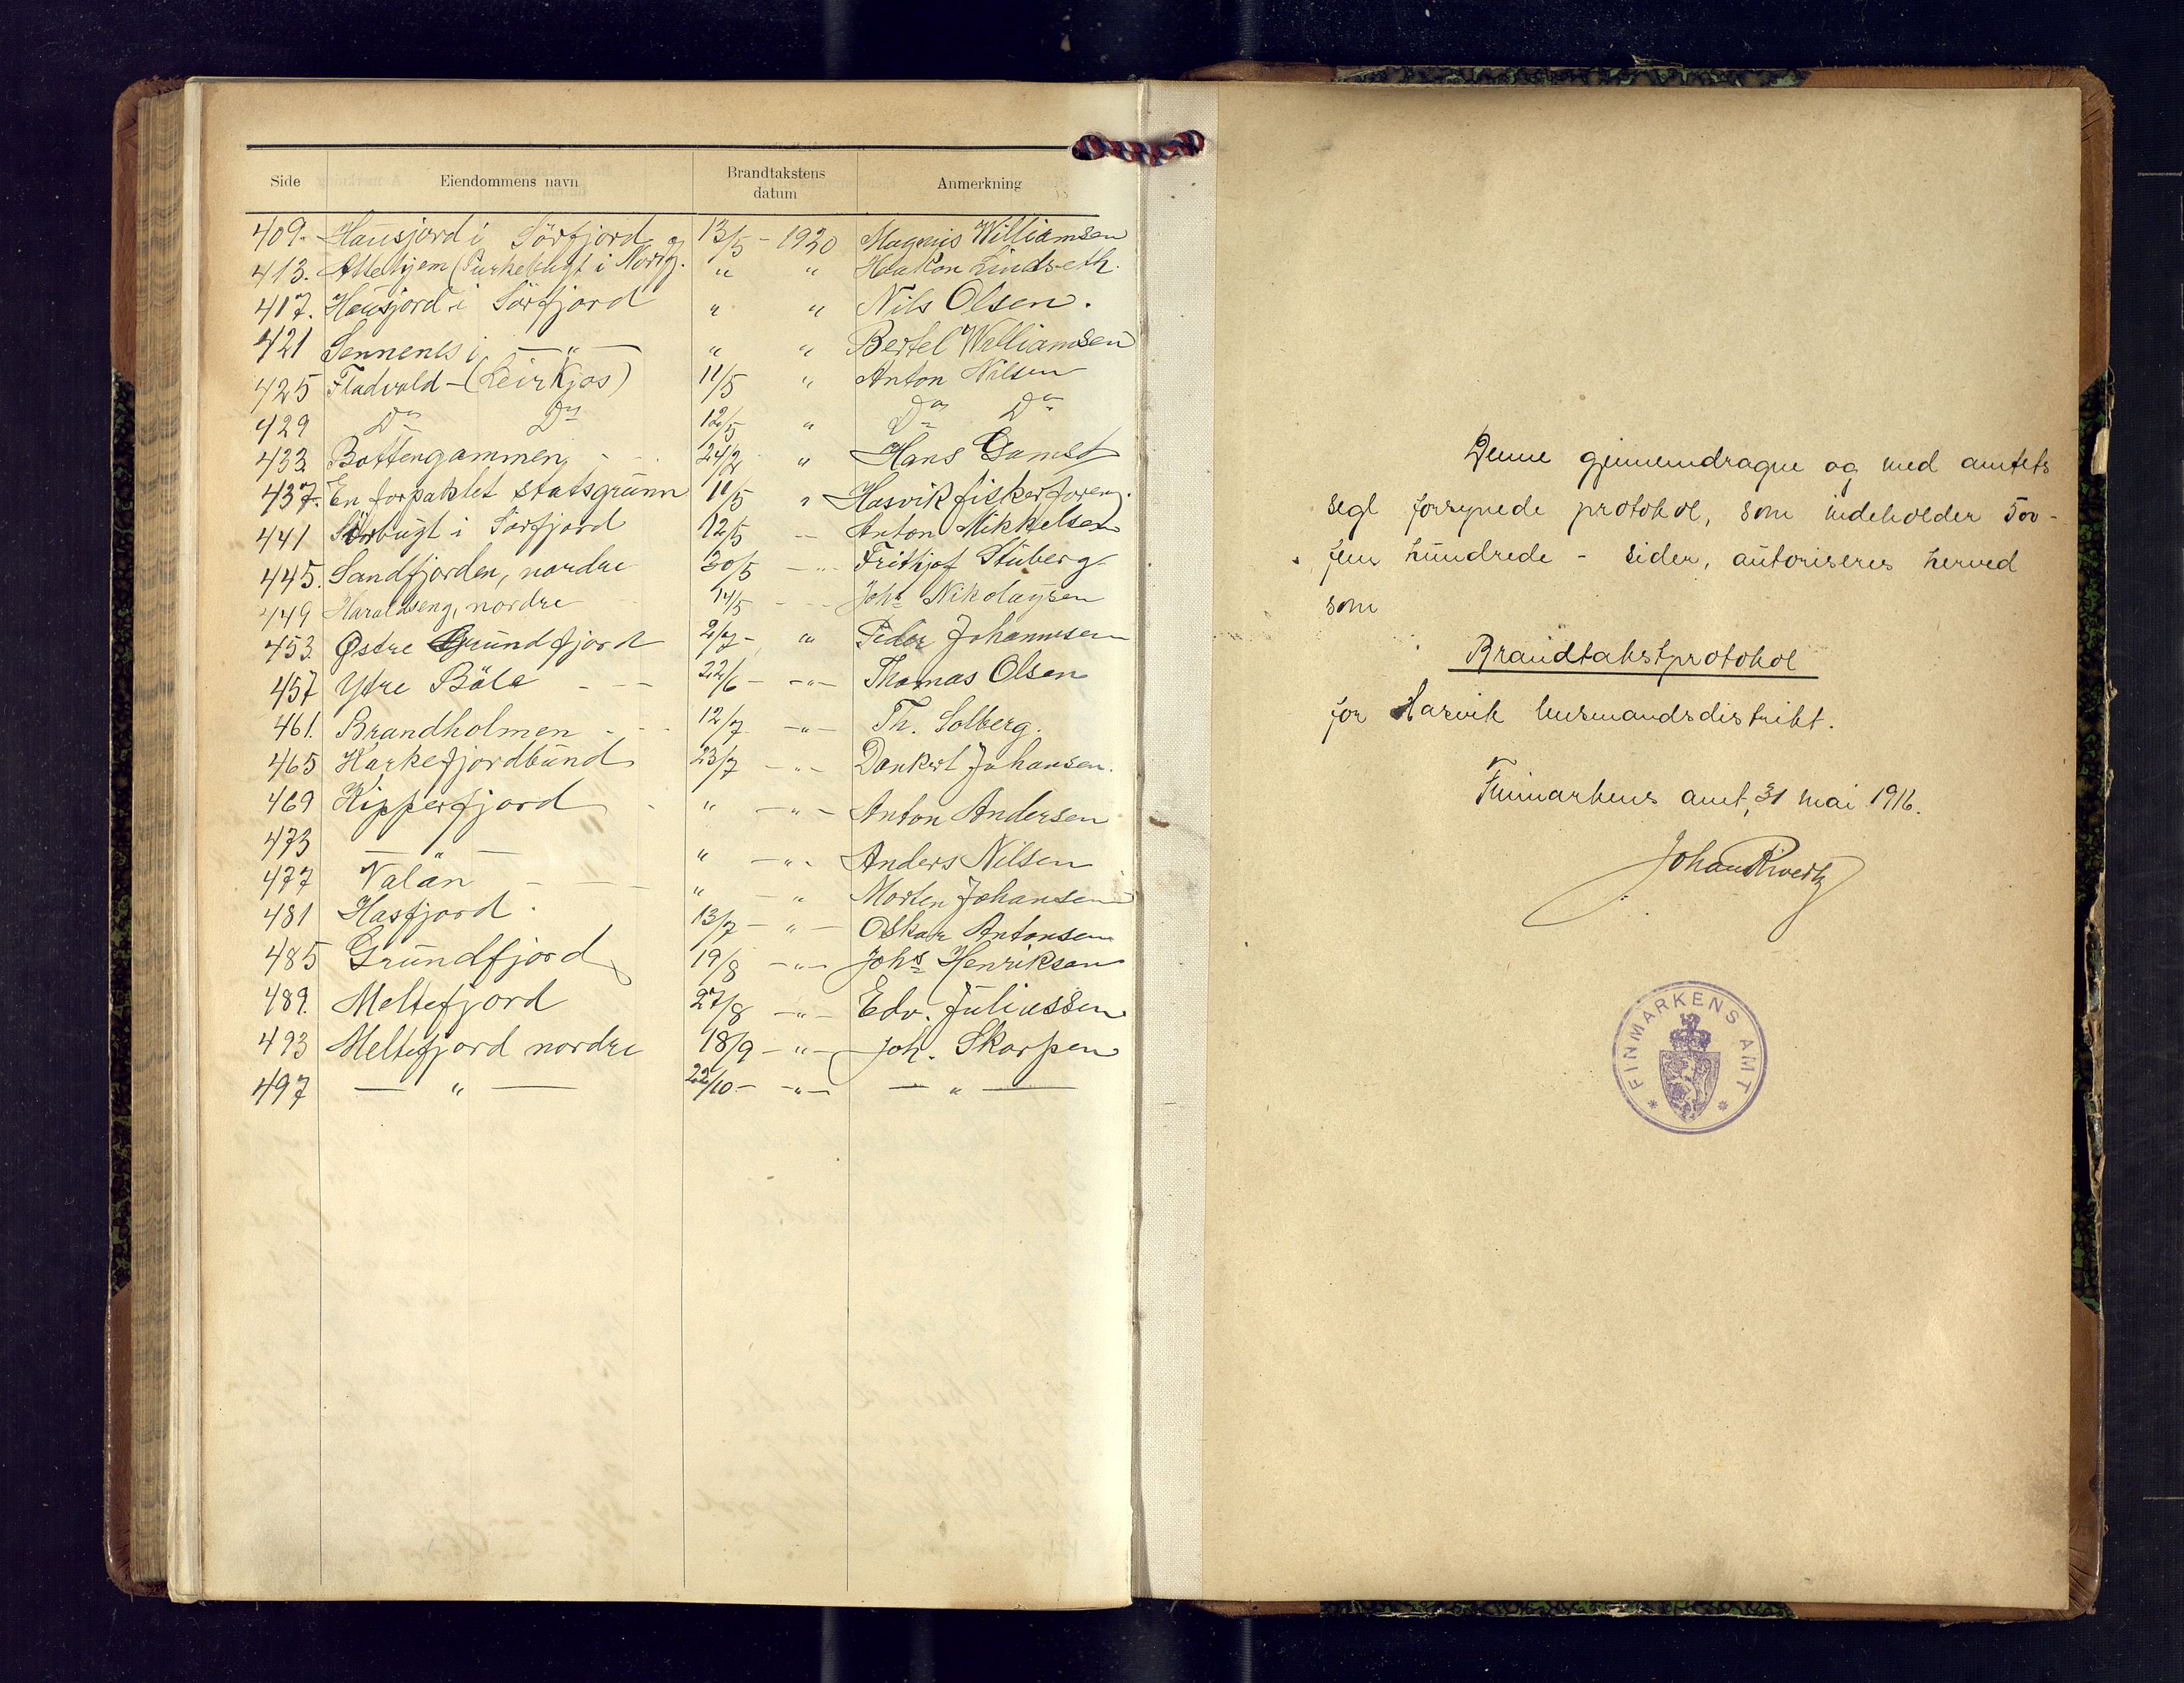 Side Eiendommens navn Brandtakstens datum Anmerkning
409. Hausjord i Sörfjord 13/5 - 1920 Magnus Williamsen
413. Altehjem (Purkebugt i Norfj. " " Haakon Lindseth.
417. Hausjord i Sörfjord " " Nils Olsen.
421 Sennenes i — " — " " Bertel Williamsen
425 Fladvold - (Leirkjos) 11/5 " Anton Nilsen
429 Do Do 12/5 " Do Do
433 Bottengammen - - 24/2 " Hans Gamst
437. En forpaktet statsgrunn 11/5 " Hasvik fiskerforeng.
441 Sörbugt i Sörfjord 12/5 — Anton Mikkelsen
445. Sandfjorden, nordre 30/5 - " - Frithjof Stuberg
449 Haraldseng, nordre 14/5 - - Johs Nikolaysen
453. Østre Grundfjord 2/7 - " Peder Johannesen
457 Ytre Böle - - - 22/6 - - " - Thomas Olsen
461. Brandholmen - - - 12/7 - " - Th. Solberg.
465 Karkefjordbund 23/7 - " - Dankert Johansen.
469 Kipperfjord - " - " - Anton Andersen
473 — " — " - " - Anders Nilsen
477 Valan - - - " - " Morten Johansen
481 Hasfjord. 13/7 - " - Oskar Antonsen
485 Grundfjord 19/8 - " - Johs Henriksen
489. Meltefjord 27/8 - " - Edv. Juliussen
493 Meltefjord nordre 18/9 - " - Joh. Skarpen
497 — " — 22/10 - - " - — " —
Denne gjennemdragne og med amtets
segl forsynede protokol, som indeholder 500 -
fem hundrede - sider, autoriseres herved
som
Brandtakstprotokol
for Hasvik lensmandsdistrikt.
Finmarkens amt, 31 mai 1916.
Johan Rivertz
FINMARKENS AMT